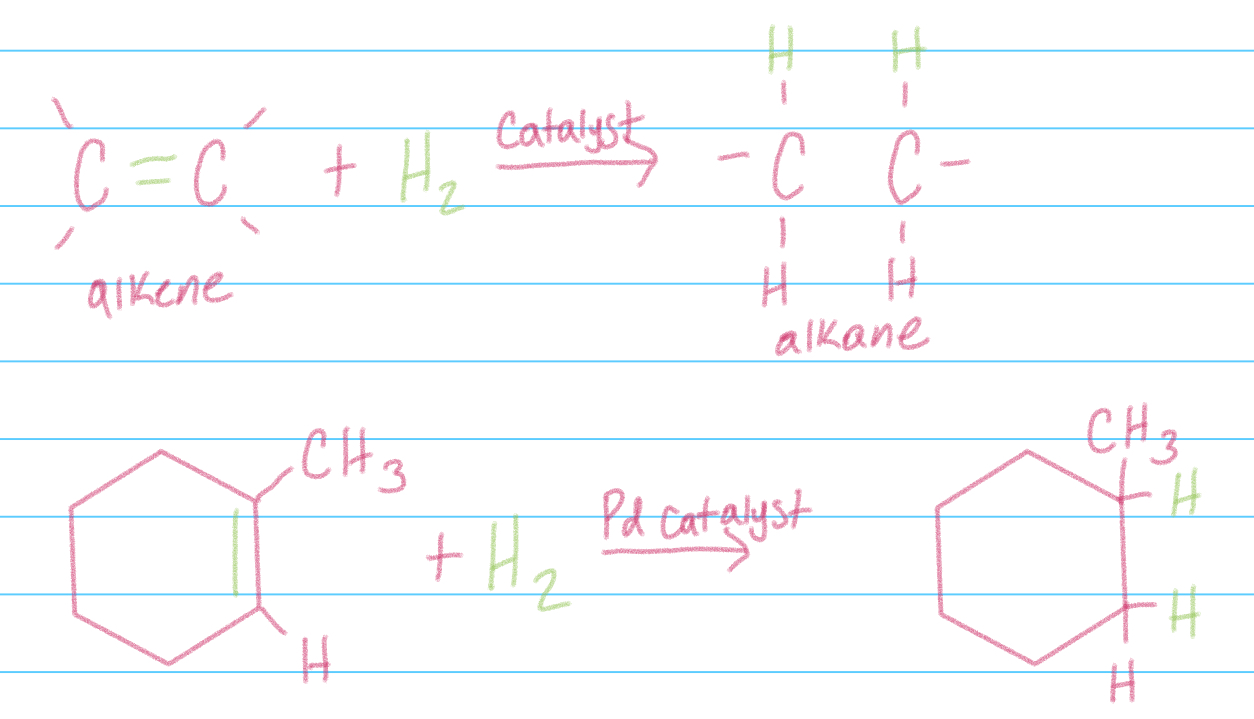 H H
C = C + H2 Catalyst → - C C -
H H
alkene alkane
CH3 CH3
H
+ H2 Pd Catalyst →
H
H H